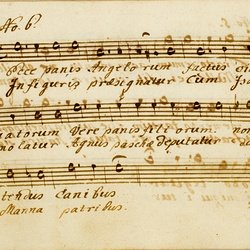 No. 6.
Ecce panis Angelorum factus
In figuris præsignatur Cum
catorum Vere panis filiorum no
molatur Agnus paschæ deputatur
tendus Canibus
Manna patribus.